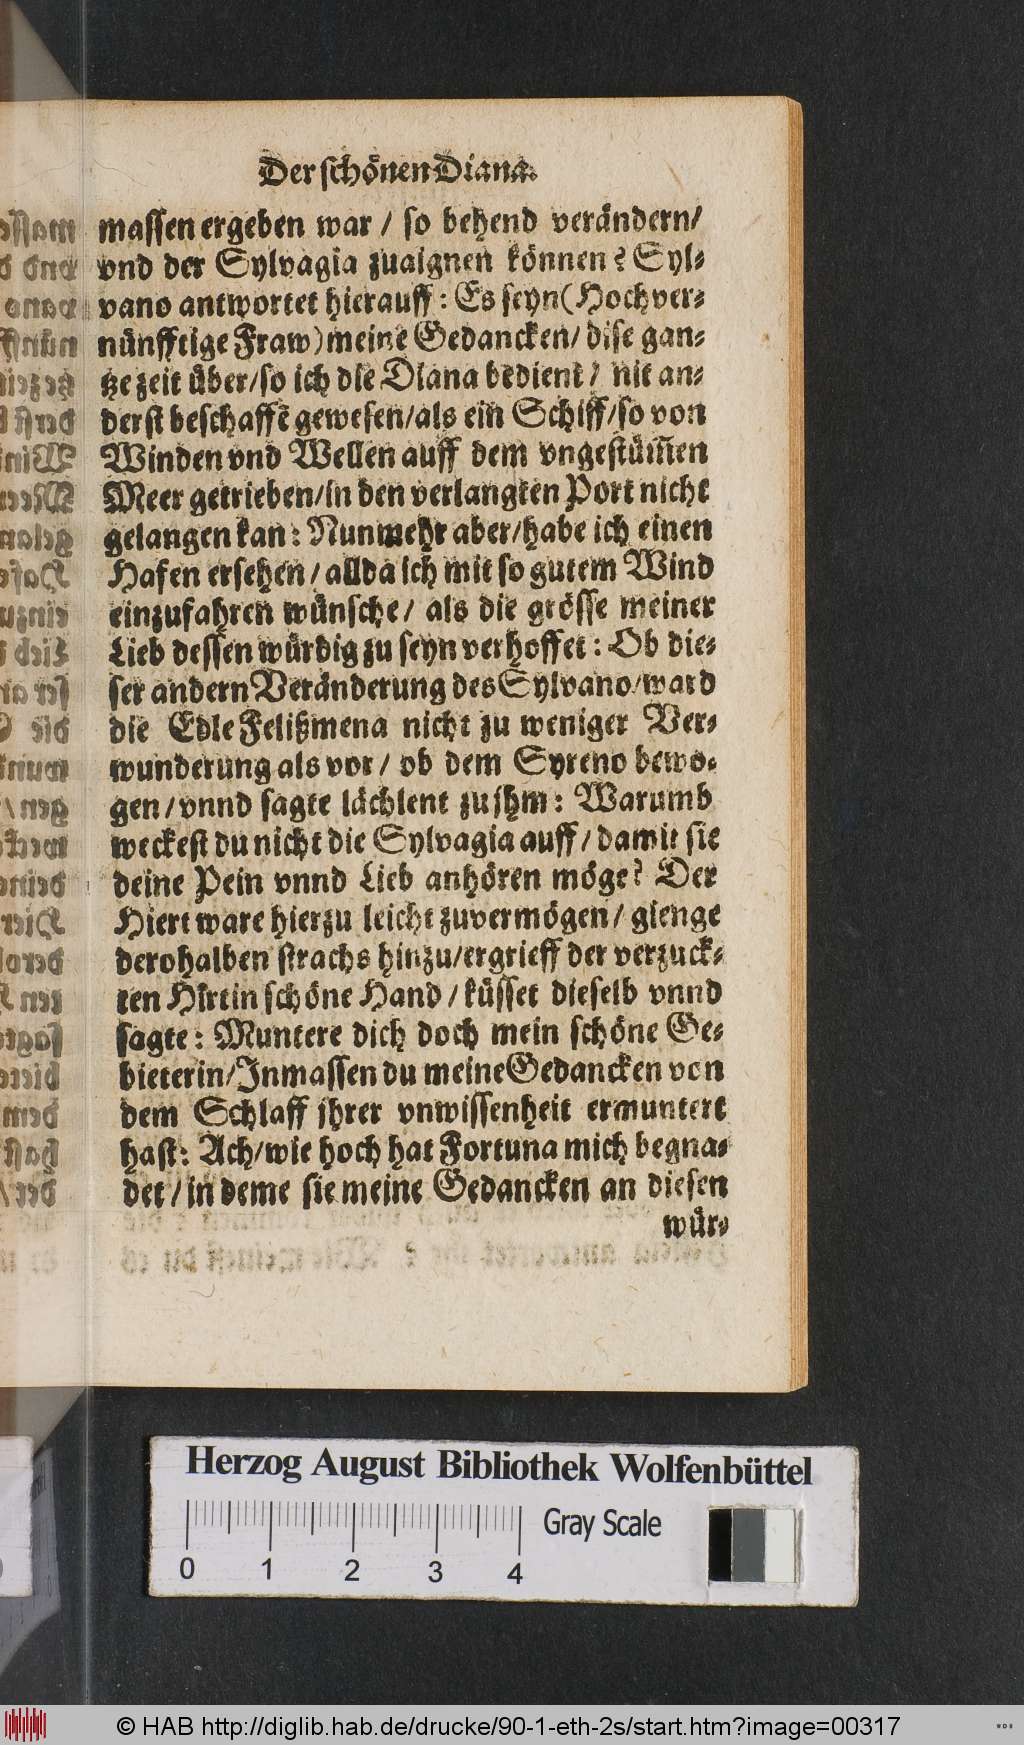 Der schönen Diana.
massen ergeben war / so behend verändern/
vnd der Sylvagia zuaignen können? Syl-
vano antwortet hierauff: Es seyn (Hochver-
nünfftige Fraw) meine Gedancken/ dise gan-
tze zeit über/so ich die Diana bedient / nit an-
derst beschaffē gewesen/als ein Schiff/so von
Winden vnd Wellen auff dem vngestüm̄en
Meer getrieben/in den verlangten Port nicht
gelangen kan: Nunmehr aber/habe ich einen
Hafen ersehen / allda ich mit so gutem Wind
einzufahren wünsche/ als die grösse meiner
Lieb dessen würdig zu seyn verhoffet: Ob die-
ser andern Veränderung des Sylvano/ward
die Edle Felißmena nicht zu weniger Ver-
wunderung als vor/ ob dem Syreno bewo-
gen / vnnd sagte lächlent zu jhm: Warumb
weckest du nicht die Sylvagia auff / damit sie
deine Pein vnnd Lieb anhören möge? Der
Hiert ware hierzu leicht zuvermögen/ gienge
derohalben strachs hinzu/ergrieff der verzuck-
ten Hirtin schöne Hand / küsset dieselb vnnd
sagte: Muntere dich doch mein schöne Ge-
bieterin/Inmassen du meine Gedancken von
dem Schlaff jhrer vnwissenheit ermuntert
hast: Ach/wie hoch hat Fortuna mich begna-
det / in deme sie meine Gedancken an diesen
wür-
Herzog August Bibliothek Wolfenbüttel
Gray Scale
0 1 2 3 4
© HAB http://diglib.hab.de/drucke/90-1-eth-2s/start.htm?image=00317